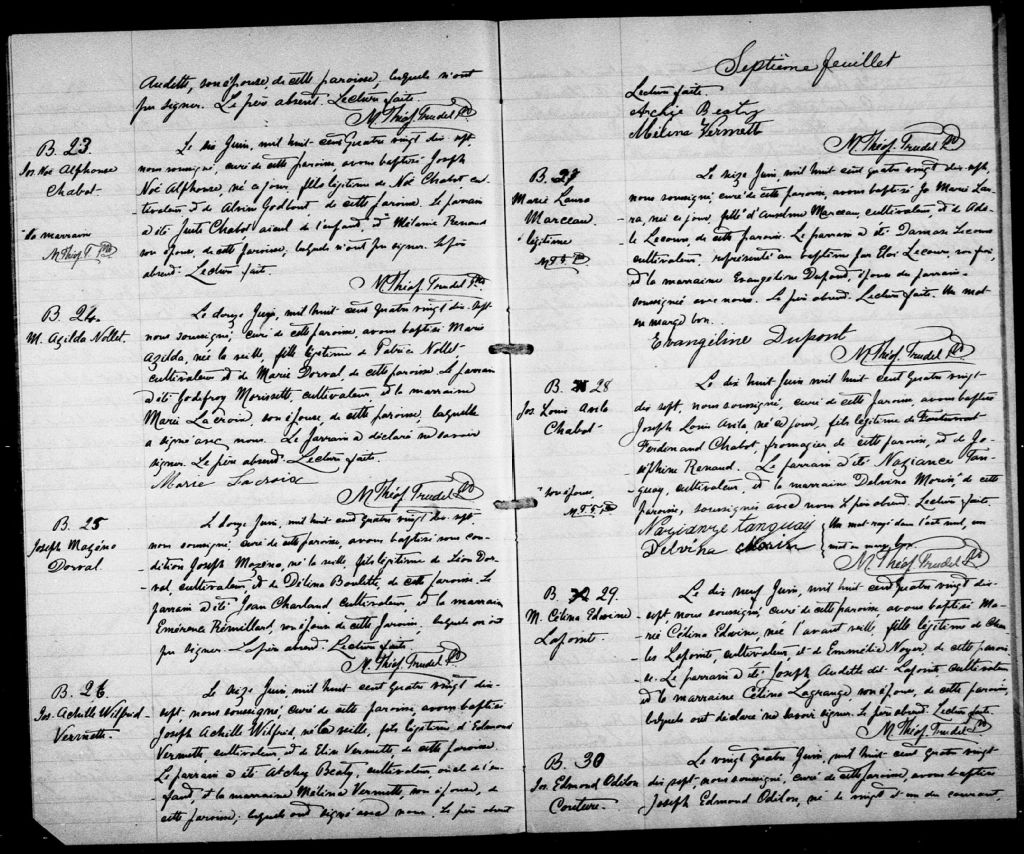 Audette, son épouse, de cette paroisse, lesquels n'ont
pu signer. Le père absent. Lecture faite.
M. Théop. Trudel Ptre
B. 23
Jos. Noé Alphonse
Chabot
la marraine
M. Théop. T. Ptre
Le dix Juin, mil huit cent quatre vingt dix sept,
nous soussigné, curé de cette paroisse avons baptisé Joseph
Noé Alphonse, né ce jour, fils légitime de Noé Chabot, cul-
tivateur, et de Godbout de cette paroisse. Le parrain
a été Juste Chabot aïeul de l'enfant, et Mélanie Renaud
son épouse, de cette paroisse, lesquels n'ont pu signer. Le père
absent. Lecture faite.
M. Théop. Trudel Ptre
B. 24
M. Azilda Nollet.
Le douze Juin, mil huit cent quatre vingt dix sept
nous soussigné, curé de cette paroisse, avons baptisé Marie
Azilda, née la veille, fille légitime de Patrice Nollet,
cultivateur et de Marie Dorval, de cette paroisse. Le parrain
a été Godefroy Morissette, cultivateur, et la marraine
Marie Lacroix, son épouse, de cette paroisse, laquelle
a signé avec nous. Le parrain a déclaré ne savoir
signer. Le père absent. Lecture faite.
Marie Lacroix
M. Théop. Trudel Ptre
B. 25
Joseph Mazéno
Dorval.
Le douze Juin, mil huit cent quatre vingt dix sept,
nous soussigné, curé de cette paroisse, avons baptisé sous con-
dition Joseph Mazéno, né la veille, fils légitime de Léon Dor-
val, cultivateur, et de Délina Boulette, de cette paroisse. Le
parrain a été Jean Charland, cultivateur, et la marraine
Emérence Rémillard, son épouse de cette paroisse, lesquels n'ont
pu signer. Le père absent. Lecture faite.
M. Théop. Trudel Ptre
B. 26
Jos. Achille Wilfrid
Vermette.
Le seize Juin, mil huit cent quatre vingt dix
sept, nous soussigné, curé de cette paroisse, avons baptisé
Joseph Achille Wilfrid, né la veille, fils légitime d'Edmond
Vermette, cultivateur, et de Eliza Vermette de cette paroisse.
Le parrain a été Beaty, cultivateur, oncle de l'en-
fant, et la marraine Mélina Vermette, son épouse, de
cette paroisse, lesquels ont signé avec nous. Le père absent
Septième feuillet
Lecture faite.
Archie Beatty
Mélina Vermett
M. Théop. Trudel Ptre
B. 27
Marie Laura
Marceau.
légitime
M. T. T. Ptre
Le seize Juin, mil huit cent quatre vingt dix sept,
nous soussigné, curé de cette paroisse, avons baptisé Marie Lau-
ra, née ce jour, fille d'Anselme Marceau, cultivateur, et de Adè-
le Lecours, de cette paroisse. Le parrain a été Damase Lecours
cultivateur, représenté au baptême par Lecours, son frère,
et la marraine Evangéline Dupond, épouse du parrain
soussignée avec nous. Le père absent. Lecture faite. Un mot
en marge bon.
Evangéline Dupont
M. Théop. Trudel Ptre
B. 28
Jos. Louis Avila
Chabot
son épouse,
M. T. T. Ptre
Le dix huit Juin mil huit cent quatre vingt
dix sept, nous soussigné, curé de cette paroisse, avons baptisé
Joseph Louis Avila, né ce jour, fils légitime de
Ferdinand Chabot, fromagier de cette paroisse, et de Jo-
séphine Renaud. Le parrain a été Naziance Tan-
guay, cultivateur, et la marraine Delvina Morin, de cette
paroisse, soussignés avec nous. Le père absent. Lecture faite.
Nazianze tanguay
Delvina Morin
Un mot rayé dans l'acte nul, un
mot en marge bon.
M. Théop. Trudel Ptre
B. 29
M. Célina Edwine
Lapointe.
Le dix neuf Juin, mil huit cent quatre vingt dix-
sept, nous soussigné, curé de cette paroisse avons baptisé Ma-
rie Célina Edwine, née l'avant veille, fille légitime de Char-
les Lapointe, cultivateur, et de Emmélie Noyer de cette parois-
se. Le parrain a été Joseph Audette dit Lapointe, cultivateur
et la marraine Célina Lagrange, son épouse, de cette paroisse,
lesquels ont déclaré ne savoir signer. Le père absent. Lecture faite.
M. Théop. Trudel Ptre
B. 30
Jos. Edmond Odilon
Couture.
Le vingt quatre Juin, mil huit cent quatre vingt
dix sept, nous soussigné, curé de cette paroisse, avons baptisé
Joseph Edmond Odilon, né le vingt et un du courant,